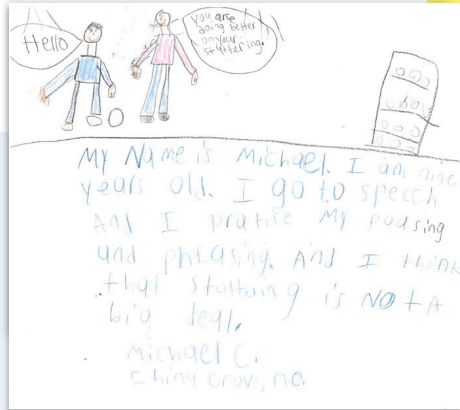 Hello
you are
doing better
on your
stuttering.
My Name is Michael. I am nine
years old. I go to speech
And I pratice My pausing
and phrasing. And I think
that stuttering is NOt A
big deal.
Michael C.
China Grove, nc.